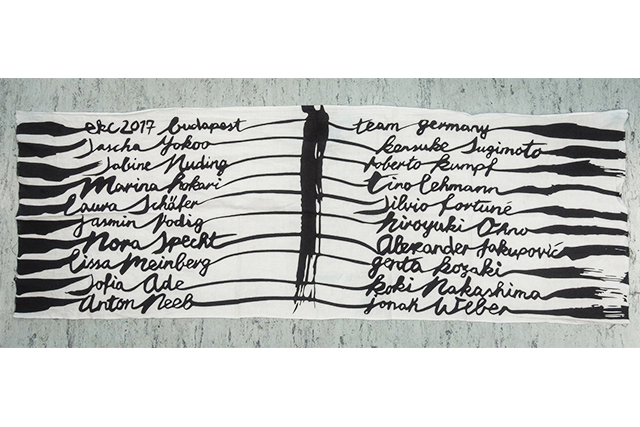 ekc2017 budapest team germany
Jascha Yokoo kensuke Sugimoto
Sabine Nuding roberto kumpf
Marina kokari tino Lehmann
Laura Schäfer Silvio fortuné
jasmin Podig hiroyuki Ohno
Nora Specht Alexander jakupović
Lissa Meinberg genta kozaki
Sofia Ade koki Nakashima
Anton Neeb jonak Weber